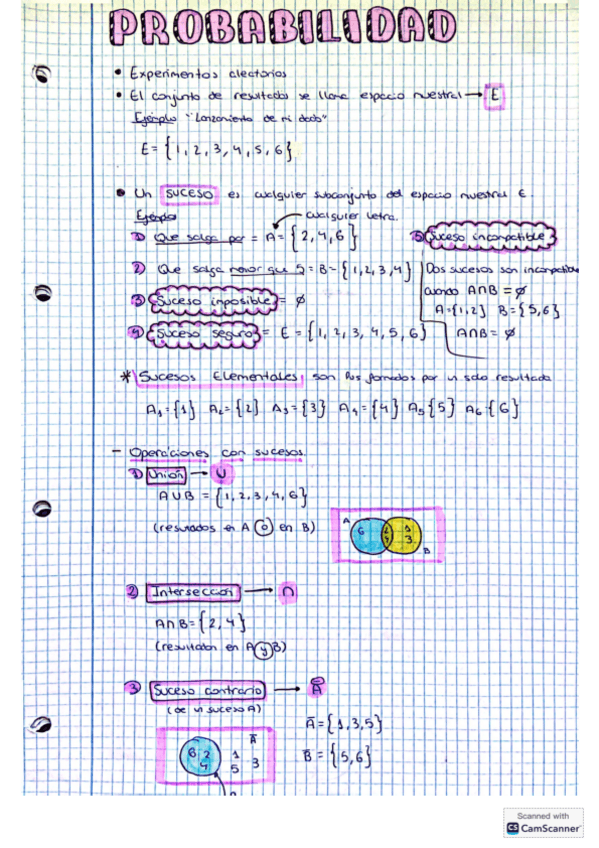 PROBABILIDAD
• Experimentos aleatorios
• El conjunto de resultados se llama espacio muestral → E
Ejemplo "Lanzamiento de mi dado"
E = {1, 2, 3, 4, 5, 6}
• Un suceso es cualquier subconjunto del espacio muestral E.
Ejemplo
cualquier letra.
1) Que salga par = A = {2, 4, 6}
2) Que salga menor que 5 = B = {1, 2, 3, 4}
3) Suceso imposible = ∅
4) Suceso seguro = E = {1, 2, 3, 4, 5, 6}
5) Suceso incompatible
Dos sucesos son incompatible
cuando A∩B = ∅
A={1,2} B={5,6}
A∩B = ∅
* Sucesos Elementales, son los formados por un solo resultado
A₁={1} A₂={2} A₃={3} A₄={4} A₅{5} A₆{6}
- Operaciones con sucesos.
1) Unión → U
AUB = {1, 2, 3, 4, 6}
(resultados en A o en B)
A 6 2 4 1 3 B
2) Intersección → ∩
A∩B = {2, 4}
(resultados en A y B)
3) Suceso contrario → Ā
(de un suceso A)
Ā = {1, 3, 5}
B̄ = {5, 6}
6 2 4 1 5 3 Ā
Scanned with
CS CamScanner